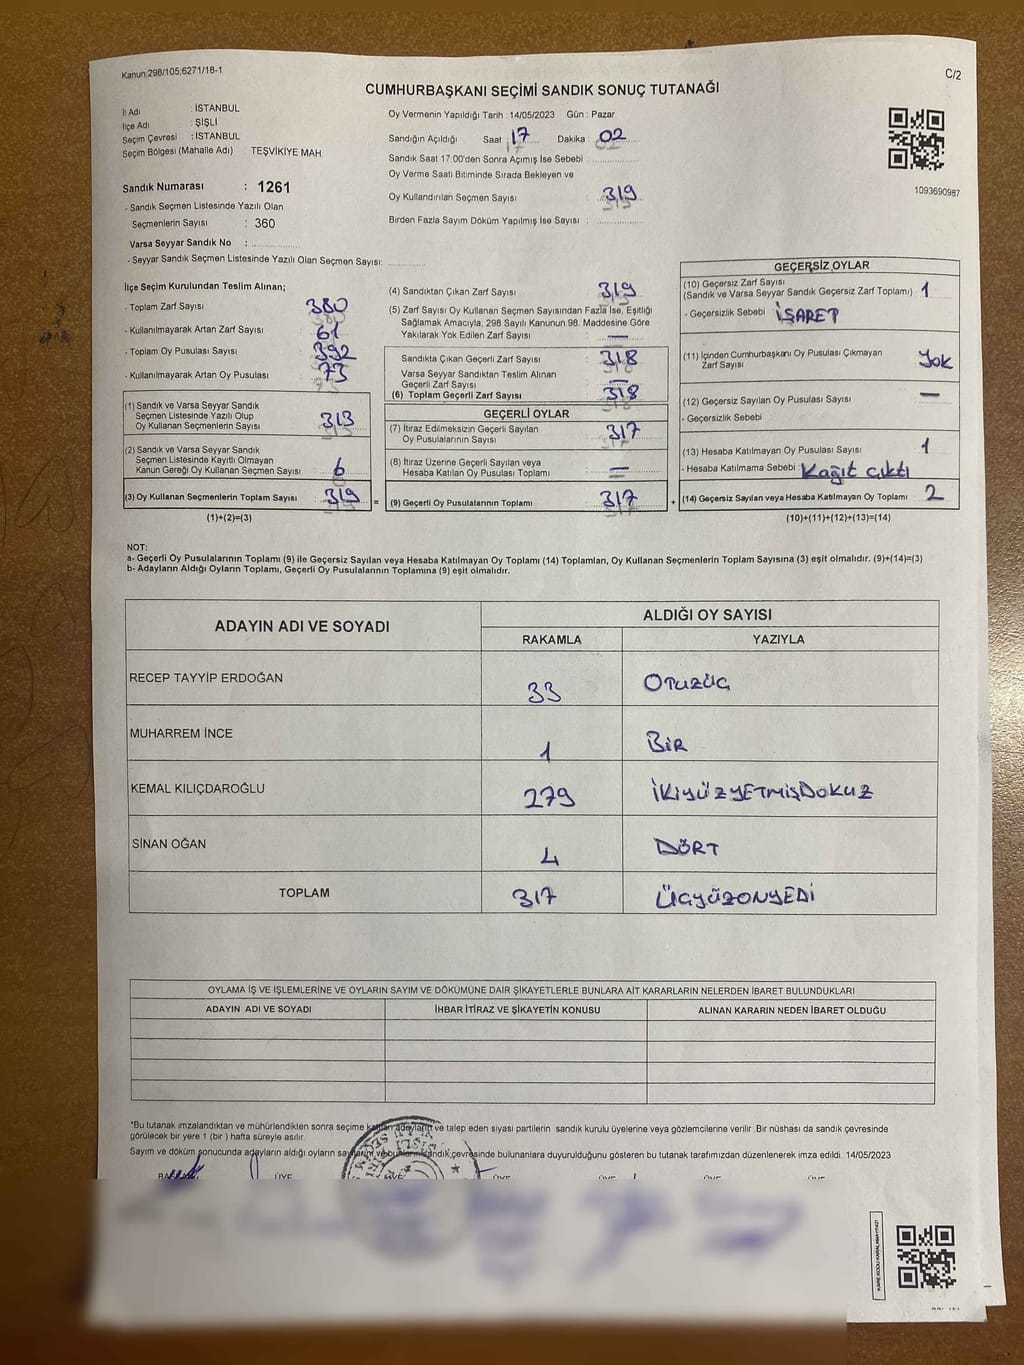 Kanun;298/105;6271/18-1
C/2
CUMHURBAŞKANI SEÇİMİ SANDIK SONUÇ TUTANAĞI
İl Adı : İSTANBUL
İlçe Adı : ŞİŞLİ
Seçim Çevresi : İSTANBUL
Seçim Bölgesi (Mahalle Adı) TEŞVİKİYE MAH
Sandık Numarası : 1261
- Sandık Seçmen Listesinde Yazılı Olan
Seçmenlerin Sayısı : 360
Varsa Seyyar Sandık No :
- Seyyar Sandık Seçmen Listesinde Yazılı Olan Seçmen Sayısı:
Oy Vermenin Yapıldığı Tarih : 14/05/2023 Gün : Pazar
Sandığın Açıldığı Saat 17 Dakika : 02
Sandık Saat 17:00'den Sonra Açımış İse Sebebi
Oy Verme Saati Bitiminde Sırada Bekleyen ve
Oy Kullandırılan Seçmen Sayısı : 319
Birden Fazla Sayım Döküm Yapılmış İse Sayısı :
1093690987
İlçe Seçim Kurulundan Teslim Alınan;
- Toplam Zarf Sayısı : 380
- Kullanılmayarak Artan Zarf Sayısı : 61
- Toplam Oy Pusulası Sayısı : 392
- Kullanılmayarak Artan Oy Pusulası : 73
(1) Sandık ve Varsa Seyyar Sandık
Seçmen Listesinde Yazılı Olup
Oy Kullanan Seçmenlerin Sayısı : 313
(2) Sandık ve Varsa Seyyar Sandık
Seçmen Listesinde Kayıtlı Olmayan
Kanun Gereği Oy Kullanan Seçmen Sayısı : 6
(3) Oy Kullanan Seçmenlerin Toplam Sayısı : 319 =
(1)+(2)=(3)
(4) Sandıktan Çıkan Zarf Sayısı : 319
(5) Zarf Sayısı Oy Kullanan Seçmen Sayısından Fazla İse, Eşitliği
Sağlamak Amacıyla, 298 Sayılı Kanunun 98. Maddesine Göre
Yakılarak Yok Edilen Zarf Sayısı : —
Sandıkta Çıkan Geçerli Zarf Sayısı : 318
Varsa Seyyar Sandıktan Teslim Alınan
Geçerli Zarf Sayısı : —
(6) Toplam Geçerli Zarf Sayısı : 318
GEÇERLİ OYLAR
(7) İtiraz Edilmeksizin Geçerli Sayılan
Oy Pusulalarının Sayısı : 317
(8) İtiraz Üzerine Geçerli Sayılan veya
Hesaba Katılan Oy Pusulası Toplamı : —
(9) Geçerli Oy Pusulalarının Toplamı : 317 +
GEÇERSİZ OYLAR
(10) Geçersiz Zarf Sayısı
(Sandık ve Varsa Seyyar Sandık Geçersiz Zarf Toplamı) : 1
- Geçersizlik Sebebi : İŞARET
(11) İçinden Cumhurbaşkanı Oy Pusulası Çıkmayan
Zarf Sayısı : Yok
(12) Geçersiz Sayılan Oy Pusulası Sayısı : —
- Geçersizlik Sebebi
(13) Hesaba Katılmayan Oy Pusulası Sayısı : 1
- Hesaba Katılmama Sebebi : Kağıt çıktı
(14) Geçersiz Sayılan veya Hesaba Katılmayan Oy Toplamı : 2
(10)+(11)+(12)+(13)=(14)
NOT:
a- Geçerli Oy Pusulalarının Toplamı (9) ile Geçersiz Sayılan veya Hesaba Katılmayan Oy Toplamı (14) Toplamları, Oy Kullanan Seçmenlerin Toplam Sayısına (3) eşit olmalıdır. (9)+(14)=(3)
b- Adayların Aldığı Oyların Toplamı, Geçerli Oy Pusulalarının Toplamına (9) eşit olmalıdır.
ADAYIN ADI VE SOYADI
ALDIĞI OY SAYISI
RAKAMLA YAZIYLA
RECEP TAYYİP ERDOĞAN 33 OTUZÜÇ
MUHARREM İNCE 1 BİR
KEMAL KILIÇDAROĞLU 279 İKİYÜZYETMİŞDOKUZ
SİNAN OĞAN 4 DÖRT
TOPLAM 317 ÜÇYÜZONYEDİ
OYLAMA İŞ VE İŞLEMLERİNE VE OYLARIN SAYIM VE DÖKÜMÜNE DAİR ŞİKAYETLERLE BUNLARA AİT KARARLARIN NELERDEN İBARET BULUNDUKLARI
ADAYIN ADI VE SOYADI İHBAR İTİRAZ VE ŞİKAYETİN KONUSU ALINAN KARARIN NEDEN İBARET OLDUĞU
*Bu tutanak imzalandıktan ve mühürlendikten sonra seçime katılan adayların ve talep eden siyasi partilerin sandık kurulu üyelerine veya gözlemcilerine verilir. Bir nüshası da sandık çevresinde
görülecek bir yere 1 (bir ) hafta süreyle asılır.
Sayım ve döküm sonucunda adayların aldığı oyların sayılarını ve bunların sandık çevresinde bulunanlara duyurulduğunu gösteren bu tutanak tarafımızdan düzenlenerek imza edildi. 14/05/2023
ÜYE ÜYE ÜYE ÜYE ÜYE
KARE KODU KARALAMAYINIZ!